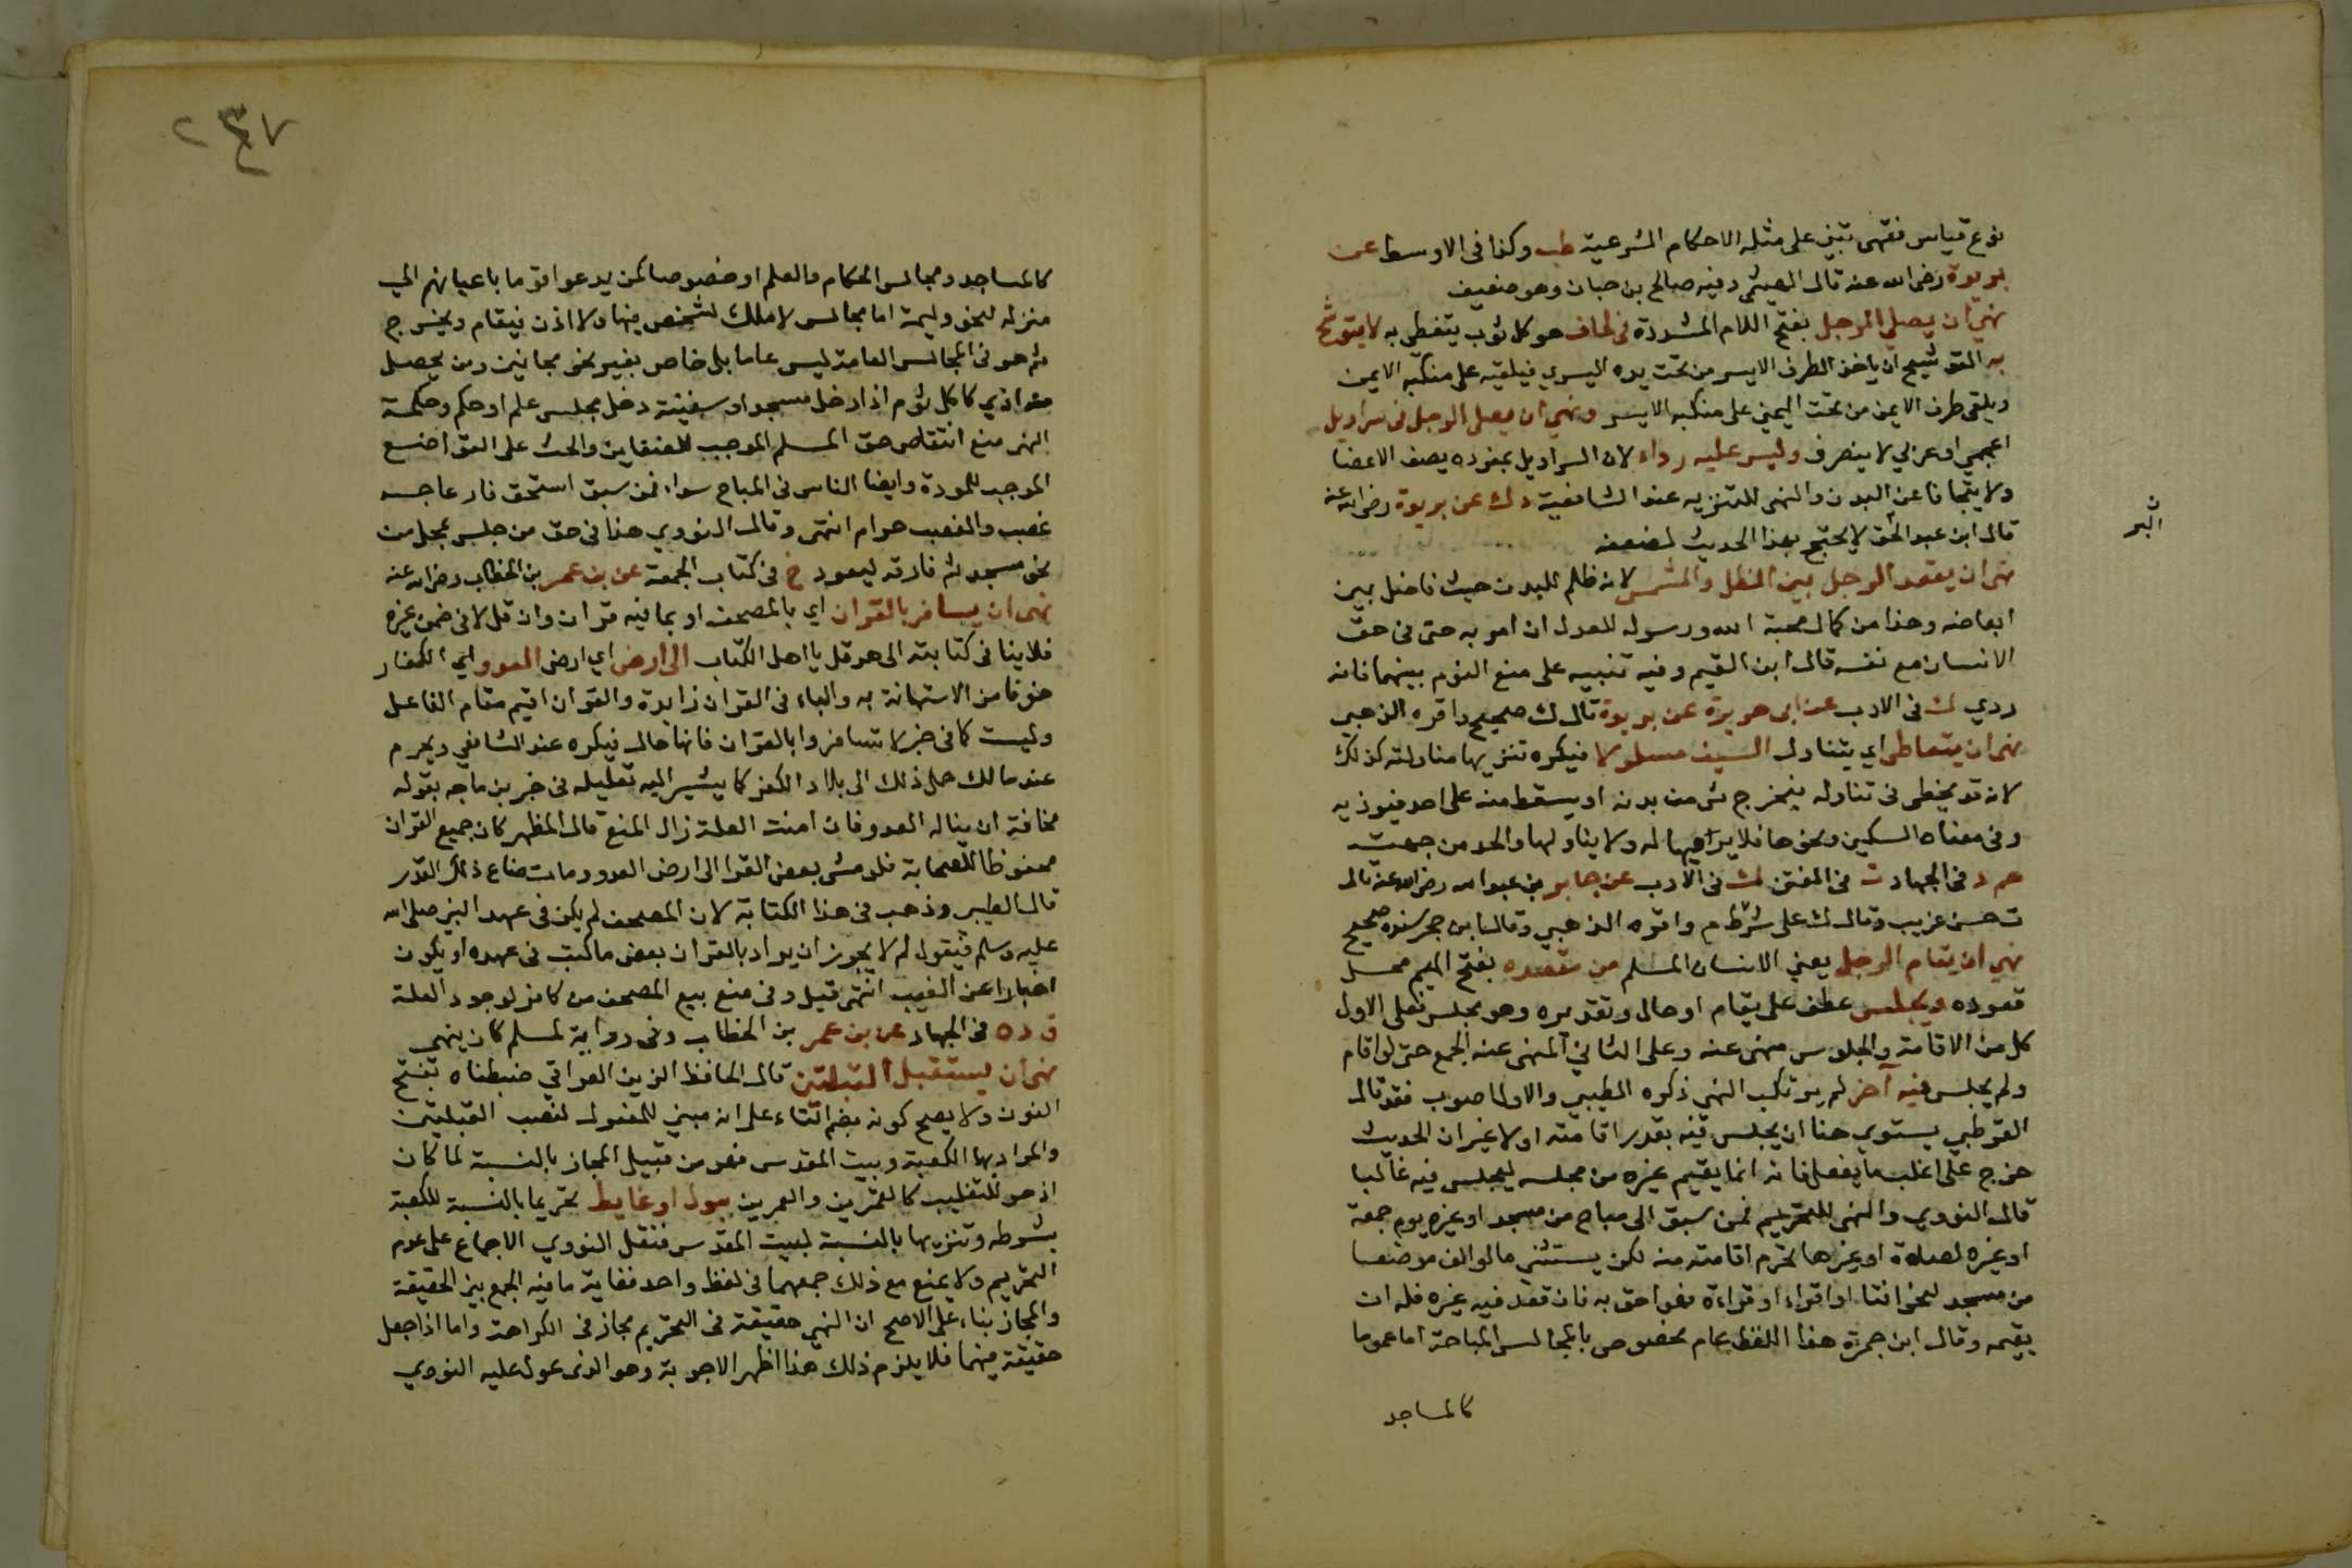 نوع قياس فقهى تبنى على مثله الاحكام الشرعية طب وكذا فى الاوسط عن
بريدة رضى الله عنه قال الهيثمى وفيه صالح بن حبان وهو ضعيف
نهي ان يصلي الرجل بفتح اللام المشددة فى لحاف هو كل ثوب يتغطى به لا يتوشح
به التوشيح ان ياخذ الطرف الايسر من تحت يده اليسري فيلقيه على منكبه الايمن
ويلقى طرف الايمن من تحت اليمني على منكبه الايسر ونهي ان يصلى الرجل فى سراويل
اعجمي او عربي لا ينصرف وليس عليه رداء لان السراويل بمفرده يصف الاعضا
ولا يتجافا عن البدن والنهى للتنزيه عند الشافعية د ك عن بريدة رضى الله عنه
قال ابن عبد الحق لا يحتج بهذا الحديث لضعفه
البر
نهى ان يقعد الرجل بين الظل والشمس لانه ظلم للبدن حيث فاضل بين
ابعاضه وهذا من كمال محبة الله ورسوله للعدل ان امر به حتى فى حق
الانسان مع نفسه قال ابن القيم وفيه تنبيه على منع النوم بينهما فانه
ردي ك فى الادب عن ابى هريرة عن بريدة قال ك صحيح واقره الذهبي
نهى ان يتعاطى اي يتناول السيف مسلولا فيكره تنزيها مناولته كذلك
لانه قد يخطى فى تناوله فيخرج شى من بدنه او يسقط منه على احد فيوذيه
وفى معناه السكين ونحوها فلا يرميها له ولا يناولها والحد من جهته
حم د فى الجهاد ت فى الفتن ك فى الادب عن جابر بن عبد الله رضى الله عنه قال
ت حسن غريب وقال ك على شرط م واقره الذهبي وقال ابن حجر سنده صحيح
نهي ان يقام الرجل يعني الانسان المسلم من مقعده بفتح الميم محل
قعوده ويجلس عطف على يقام او حال وتقديره وهو يجلس فعلى الاول
كل من الاقامة والجلوس منهى عنه وعلى الثاني المنهى عنه الجمع حتى لو اقام
ولم يجلس فيه آخر لم يرتكب النهى ذكره الطيبي والاول اصوب فقد قال
القرطبي يستوي هنا ان يجلس فيه بقدر اقامته او لا غير ان الحديث
خرج على اغلب ما يفعل فانه انما يقيم غيره من مجلسه ليجلس فيه غالبا
قال النووي والنهى للتحريم فمن سبق الى مباح من مسجد او غيره يوم جمعة
او غيره لصلاة او غيرها تحرم اقامته منه لكن يستثنى ما لو الف موضعا
من مسجد لنحو افتا او اقراء او قراءة فهو احق به فان قعد فيه غيره فله ان
يقيمه وقال ابن جمرة هذا اللفظ عام مخصوص بالمجالس المباحة اما عموما
كالمساجد
٢٤٧
كالمساجد ومجالس الحكام والعلم او خصوصا كمن يدعوا قوما باعيانهم الي
منزله لنحو وليمة اما مجالس لا ملك لشخص فيها ولا اذن فيقام ويخرج
ثم هو فى المجالس العامة ليس عاما بل خاص بغير نحو مجانين ومن يحصل
منه اذي كاكل ثوم اذا دخل مسجد او سفينة دخل مجلس علم او حكم وحكمة
النهى منع انتقاص حق المسلم الموجب للضغاين والحث على التواضع
الموجب للمودة وايضا الناس فى المباح سواء فمن سبق استحق فازعاجه
غصب والغصب حرام انتهى وقال النووي هذا فى حق من جلس بمحل من
نحو مسجد ثم فارقه ليعود خ فى كتاب الجمعة عن بن عمر بن الخطاب رضى الله عنه
نهى ان يسافر بالقران اي بالمصحف او بما فيه قران وان قل لا فى ضمن غيره
فلا ينافى كتابته الى هرقل يا اهل الكتاب الى ارض اي ارض العدو اي الكفار
خوفا من الاستهانة به والباء فى القران زايدة والقران اقيم مقام الفاعل
وليست كما فى خبر لا تسافروا بالقران فانها حال فيكره عند الشافعي ويحرم
عند مالك حمل ذلك الى بلاد الكفر كما يشير اليه تعليله فى خبر بن ماجه بقوله
مخافة ان يناله العدو فان امنت العلة زال المنع قال المظهر كان جميع القران
محفوظا للصحابة فلو مشى بعض القرا الى ارض العدو ومات ضاع ذلك القدر
قال الطيبى وذهب فى هذا الكتابة لان المصحف لم يكن فى عهد النبى صلى الله
عليه وسلم فيقول لم لا يجوز ان يراد بالقران بعض ما كتب فى عهده او يكون
اخبارا عن الغيب انتهى قيل وفى منع بيع المصحف من كافر لوجود العلة
ق د ه فى الجهاد عن بن عمر بن الخطاب وفى رواية لمسلم كان ينهى
نهى ان يستقبل القبلتين قال الحافظ الزين العراقي ضبطناه بفتح
النون ولا يصح كونه بضم التاء على انه مبني للمفعول لنصب القبلتين
والمراد بهما الكعبة وبيت المقدس فهو من قبيل المجاز بالنسبة لما كان
اذ هو للتغليب كالقمرين والعمرين ببول او غايط تحريما بالنسبة للكعبة
بشرطه وتنزيها بالنسبة لبيت المقدس فنقل النووي الاجماع على عدم
التحريم ولا يمنع مع ذلك جمعهما فى لفظ واحد فغاية ما فيه الجمع بين الحقيقة
والمجاز بناء على الاصح ان النهى حقيقة فى التحريم مجاز فى الكراهة واما اذا جعل
حقيقة فيهما فلا يلزم ذلك هذا اظهر الاجوبة وهو الذى عول عليه النووي